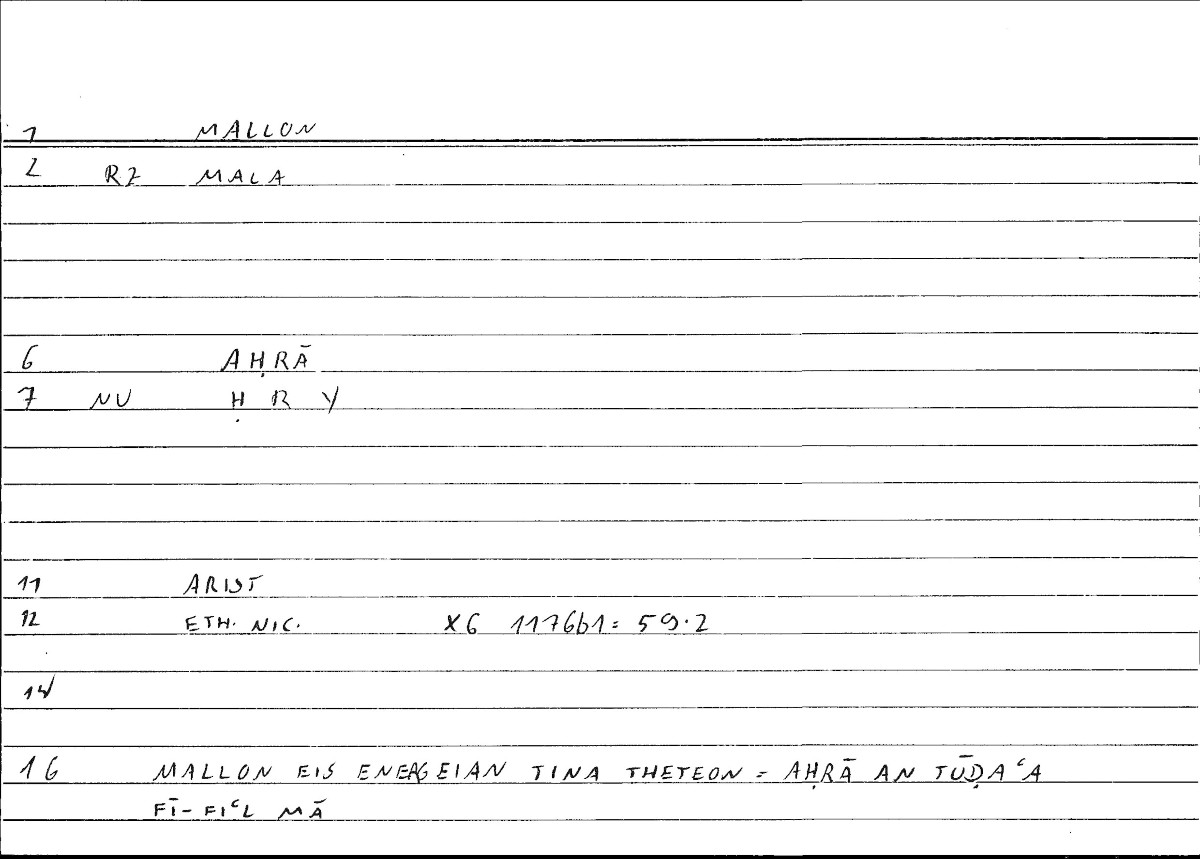 1 MALLON
2 RZ MALA
6 AḤRĀ
7 NU Ḥ R Y
11 ARIST
12 ETH. NIC. X6 1176b1 = 59.2
14
16 MALLON EIS ENERGEIAN TINA THETEON = AḤRĀ AN TŪḌAʿA
FĪ-FIʿL MĀ